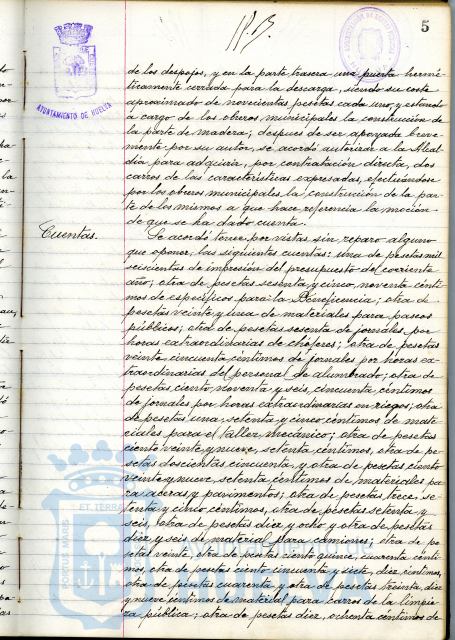 5
AYUNTAMIENTO DE HUELVA
de los despojos, y en la parte trasera una puerta hermé-
ticamente cerrada para la descarga, siendo su coste
aproximado de novecientas pesetas cada uno, y estando
a cargo de los obreros municipales la construcción de
la parte de madera; después de ser apoyada breve-
mente por su autor, se acordó autorizar a la Alcal-
día para adquirir, por contratación directa, dos
carros de las características expresadas, efectuándose
por los obreros municipales la construcción de la par-
te de los mismos a que hace referencia la moción
de que se ha dado cuenta.
Cuentas.
Se acordó tener por vistas sin reparo alguno
que oponer, las siguientes cuentas: una de pesetas mil
seiscientas de impresión del presupuesto del corriente
año; otra de pesetas sesenta y cinco, noventa cénti-
mos de específicos para la Beneficencia; otra de
pesetas veinte y una de materiales para paseos
públicos; otra de pesetas sesenta de jornales por
horas extraordinarias de chóferes; otra de pesetas
veinte cincuenta céntimos de jornales por horas ex-
traordinarias del personal de alumbrado; otra de
pesetas ciento noventa y seis, cincuenta céntimos
de jornales por horas extraordinarias en riegos; otra
de pesetas una, setenta y cinco céntimos de mate-
riales para el taller mecánico; otra de pesetas
ciento veinte y nueve, setenta céntimos, otra de pe-
setas doscientas cincuenta, y otra de pesetas ciento
veinte y nueve, setenta céntimos de materiales pa-
ra aceras y pavimentos; otra de pesetas trece, se-
tenta y cinco céntimos, otra de pesetas setenta y
seis, otra de pesetas diez y ocho y otra de pesetas
diez y seis de material para camiones; otra de pe-
setas veinte, otra de pesetas ciento quince, cuarenta cénti-
mos, otra de pesetas ciento cincuenta y siete, diez céntimos,
otra de pesetas cuarenta y otra de pesetas treinta, diez
y nueve céntimos de material para carros de la limpie-
za pública; otra de pesetas diez, ochenta céntimos de
PORTUS MARIS
ET TERRA